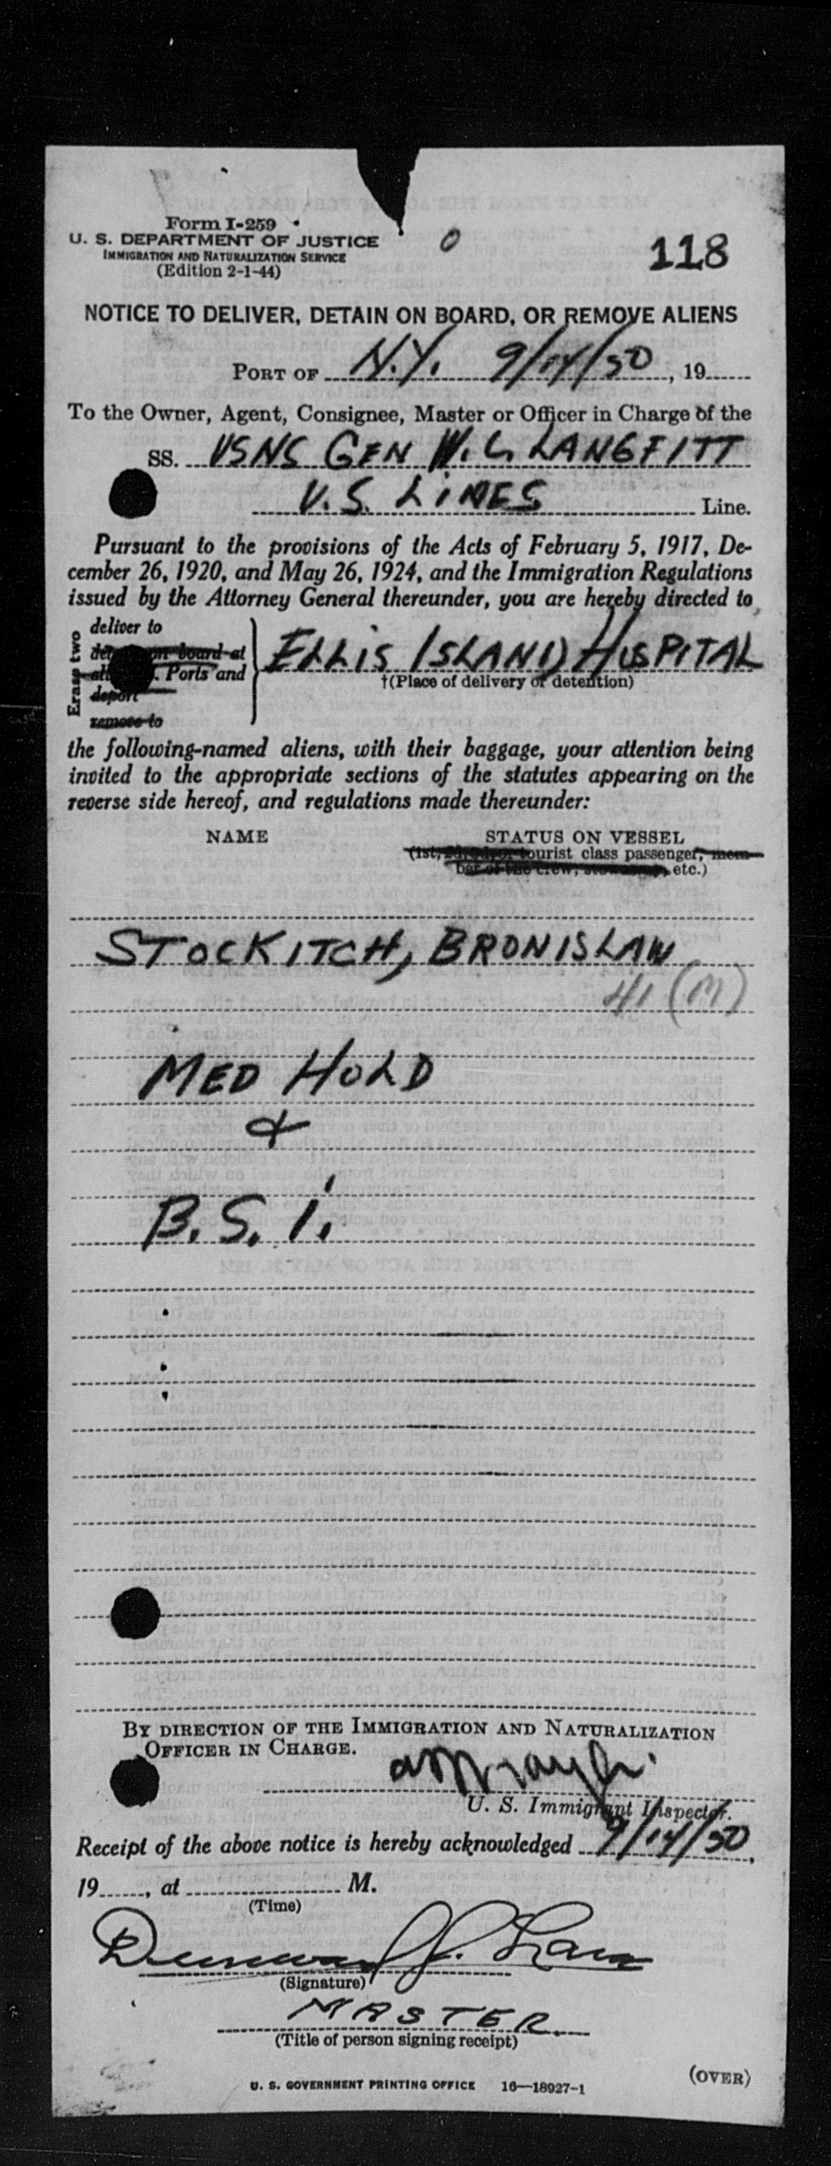 Form I-259
U. S. DEPARTMENT OF JUSTICE
IMMIGRATION AND NATURALIZATION SERVICE
(Edition 2-1-44)
0
118
NOTICE TO DELIVER, DETAIN ON BOARD, OR REMOVE ALIENS
PORT OF N.Y. 9/14/50, 19
To the Owner, Agent, Consignee, Master or Officer in Charge of the
SS. USNS GEN W.C. LANGFITT
U.S. LINES Line.
Pursuant to the provisions of the Acts of February 5, 1917, De-
cember 26, 1920, and May 26, 1924, and the Immigration Regulations
issued by the Attorney General thereunder, you are hereby directed to
Erase two
deliver to
on board at
Ports and
deport
remove to
ELLIS ISLAND HOSPITAL
†(Place of delivery or detention)
the following-named aliens, with their baggage, your attention being
invited to the appropriate sections of the statutes appearing on the
reverse side hereof, and regulations made thereunder:
NAME STATUS ON VESSEL
(1st, tourist class passenger, mem-
ber of the crew, etc.)
STOCKITCH, BRONISLAW
41 (M)
MED HOLD
&
B.S.I.
BY DIRECTION OF THE IMMIGRATION AND NATURALIZATION
OFFICER IN CHARGE.
U. S. Immigrant Inspector.
Receipt of the above notice is hereby acknowledged 9/14/50,
19, at M.
(Time)
(Signature)
MASTER
(Title of person signing receipt)
U. S. GOVERNMENT PRINTING OFFICE 16—18927-1
(OVER)